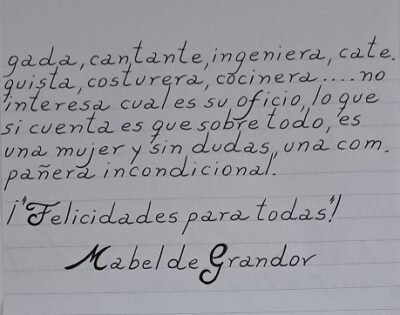 gada, cantante, ingeniera, cate.
quista, costurera, cocinera....no
interesa cual es su oficio, lo que
si cuenta es que sobre todo, es
una mujer y sin dudas, una com.
pañera incondicional.
¡"Felicidades para todas"!
Mabel de Grandor